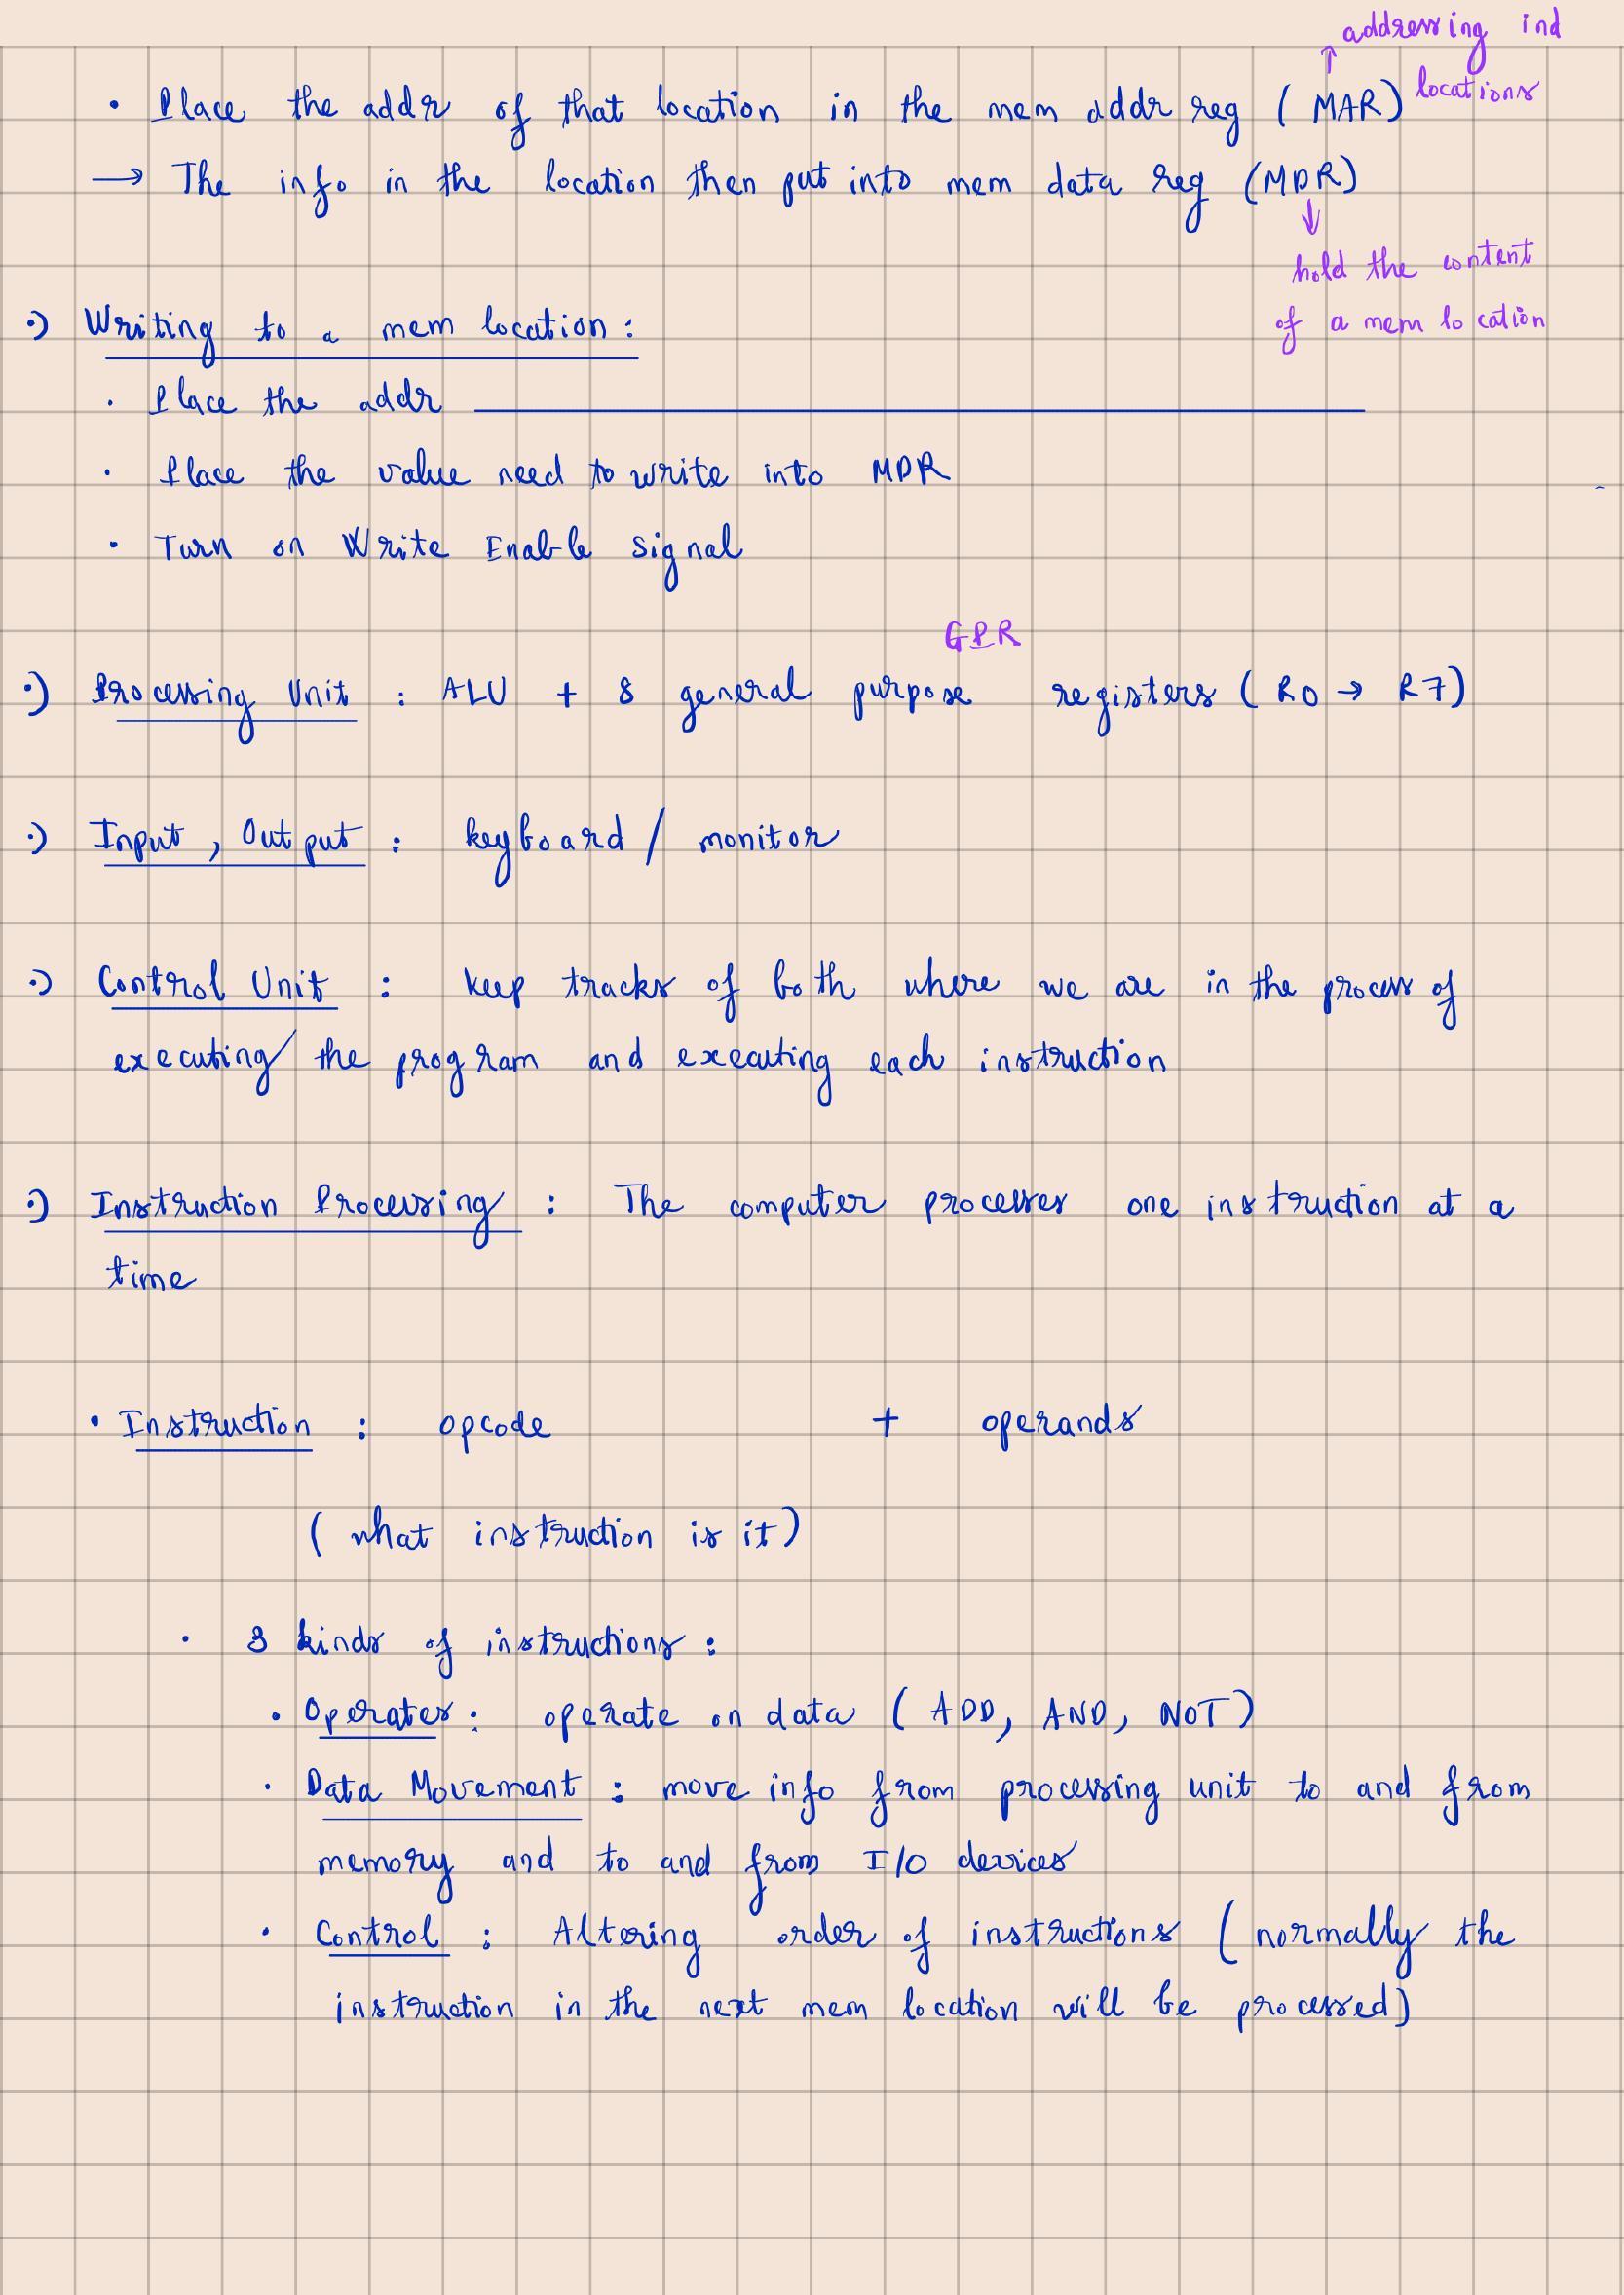 addressing ind
locations
• Place the addr of that location in the mem addr reg ( MAR)
→ The info in the location then put into mem data reg (MDR)
hold the content
of a mem location
•) Writing to a mem location :
• Place the addr
• Place the value need to write into MDR
• Turn on Write Enable signal
GPR
•) Processing Unit : ALU + 8 general purpose registers ( R0 → R7)
•) Input , Output : keyboard / monitor
•) Control Unit : keep tracks of both where we are in the process of
executing the program and executing each instruction
•) Instruction Processing : The computer processes one instruction at a
time
• Instruction : opcode + operands
( what instruction is it)
• 3 kinds of instructions :
• Operates : operate on data ( ADD, AND, NOT)
• Data Movement : move info from processing unit to and from
memory and to and from I/O devices
• Control : Altering order of instructions ( normally the
instruction in the next mem location will be processed)